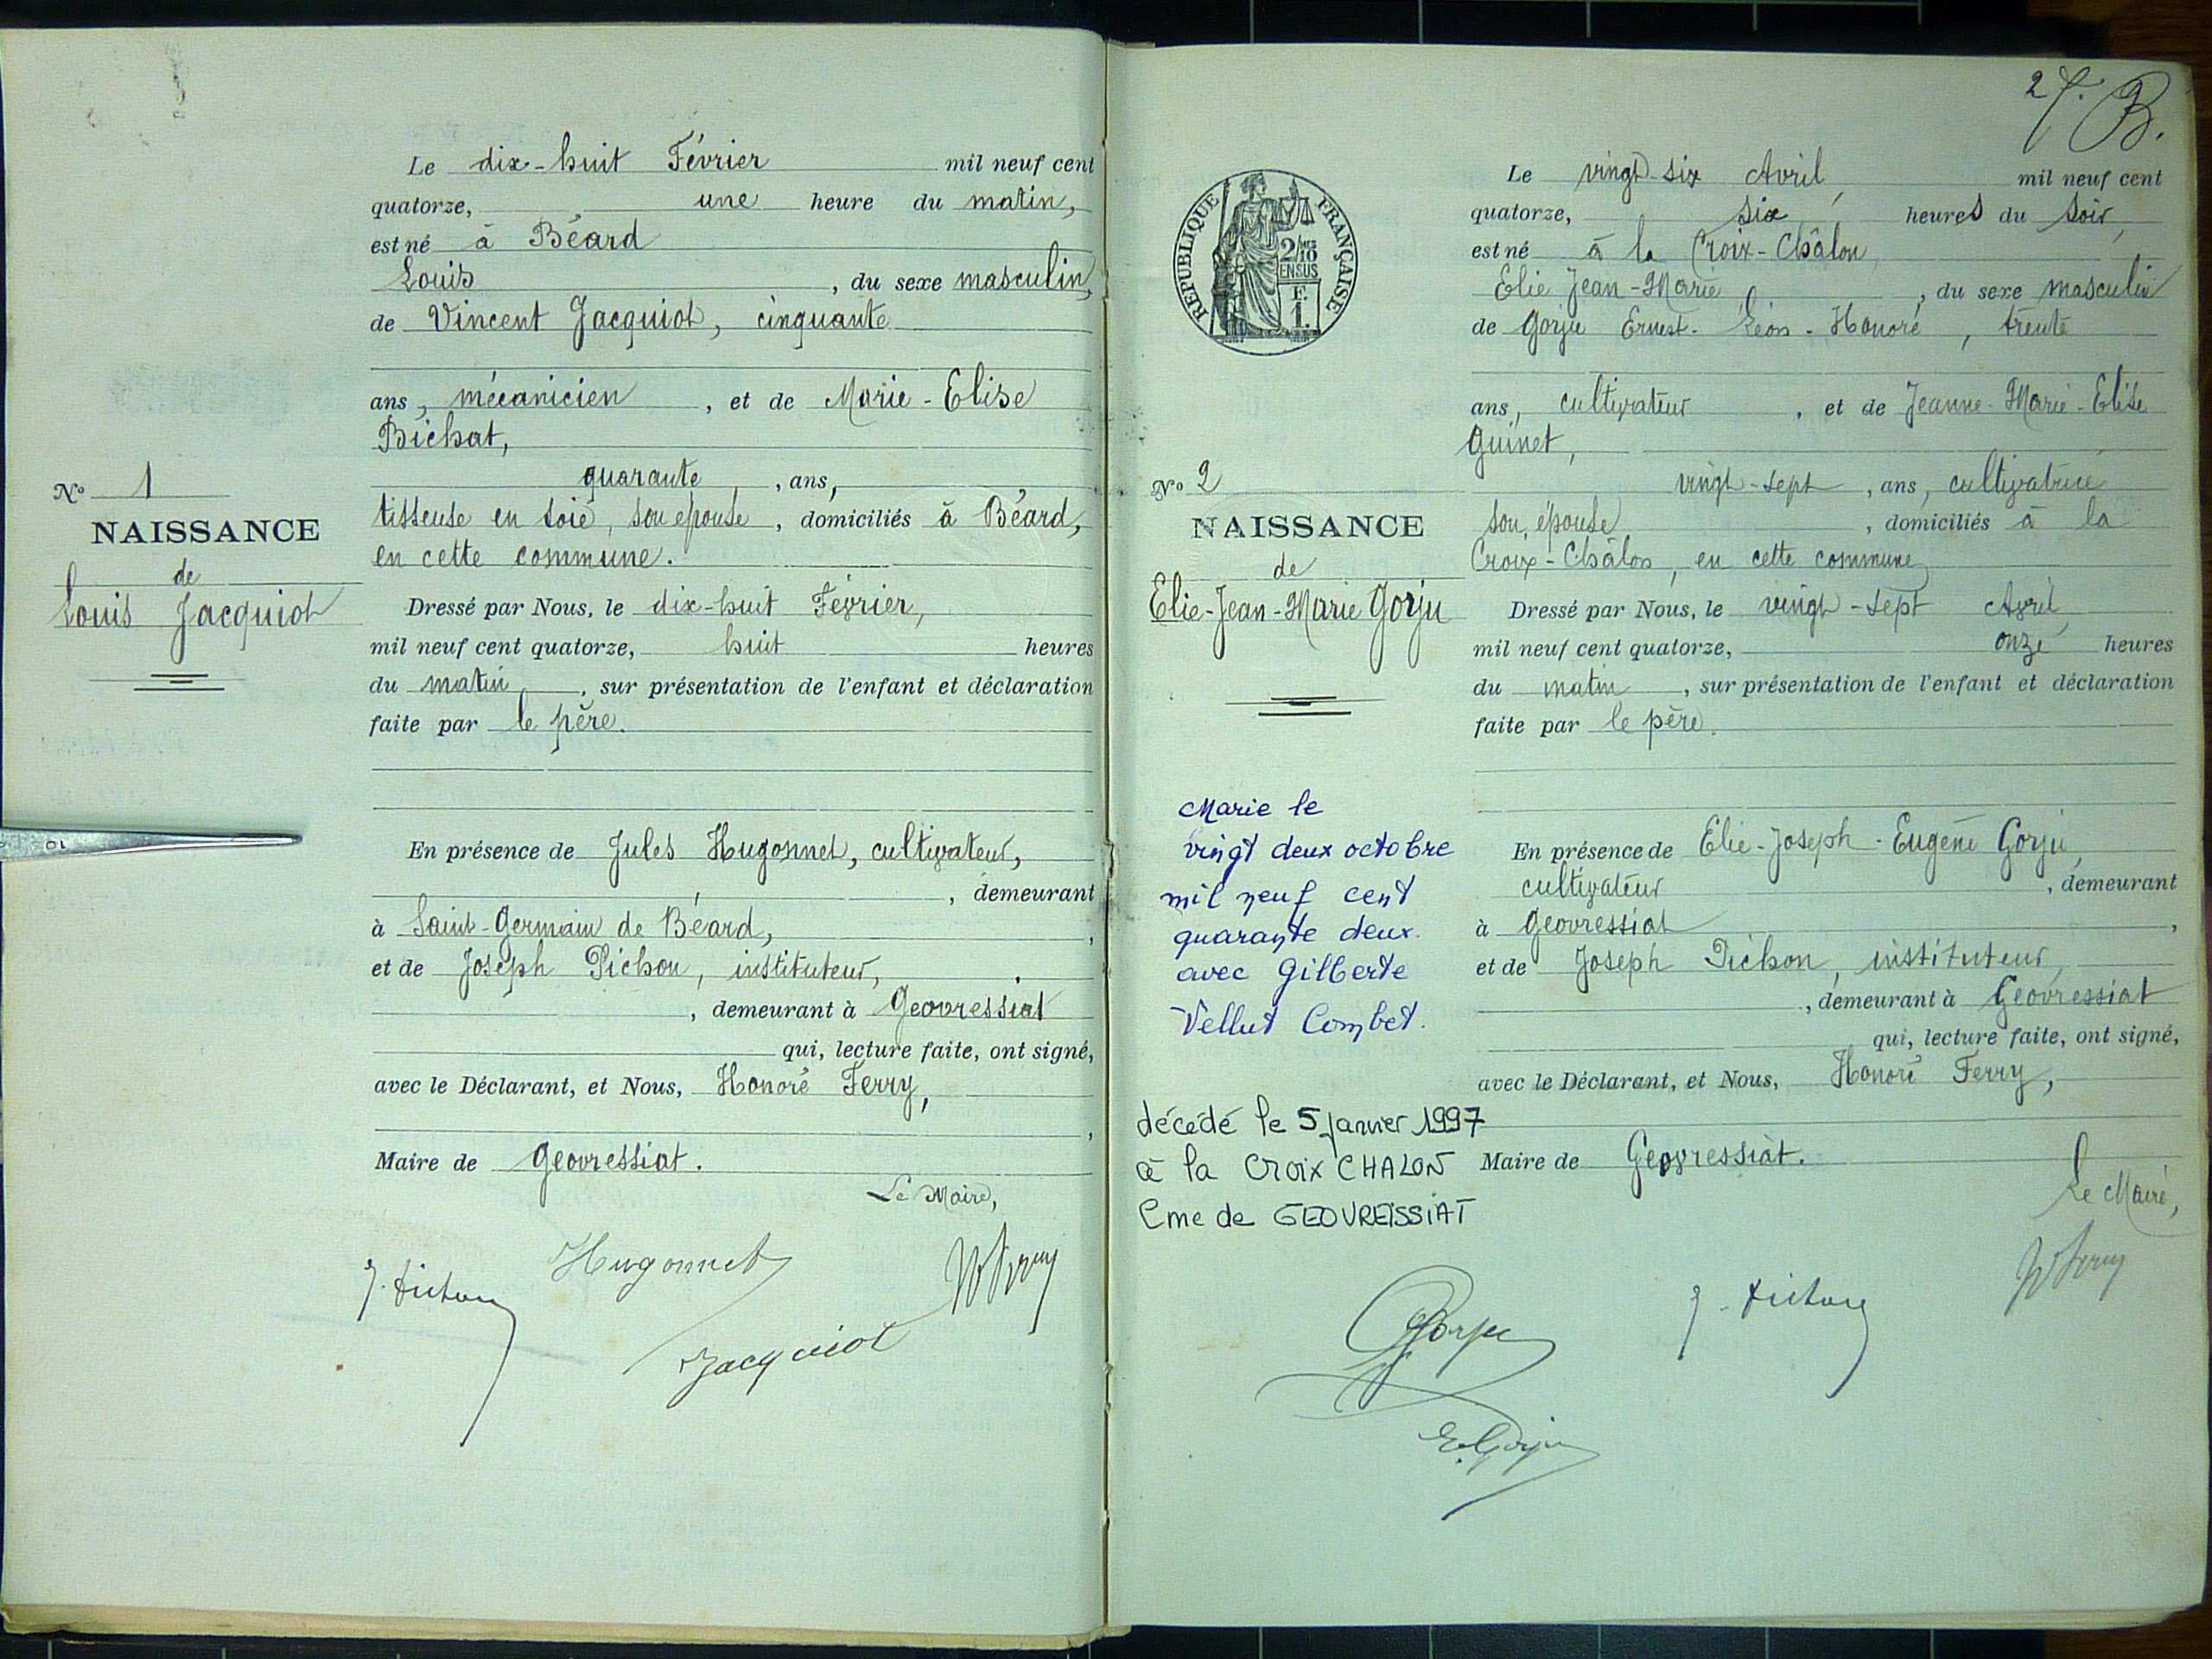 Le dix-huit Février mil neuf cent
quatorze, une heure du matin,
est né à Béard
Louis, du sexe masculin,
de Vincent Jacquiot, cinquante
ans, mécanicien, et de Marie-Elise
Bichat,
quarante, ans,
tisseuse en soie, son épouse, domiciliés à Béard,
en cette commune.
N° 1
NAISSANCE
de
Louis Jacquiot
Dressé par Nous, le dix-huit Février,
mil neuf cent quatorze, huit heures
du matin, sur présentation de l'enfant et déclaration
faite par le père.
En présence de Jules Hugonnet, cultivateur,
, demeurant
à Saint-Germain de Béard,
et de Joseph Pichon, instituteur,
, demeurant à Geovressiat
qui, lecture faite, ont signé,
avec le Déclarant, et Nous, Honoré Ferry,
Maire de Geovressiat.
Le Maire,
Hugonnet
J. Pichon
Jacquiot
HFerry
2
Le vingt-six Avril, mil neuf cent
quatorze, six, heures du soir,
est né à la Croix-Châlon,
Elie Jean-Marie, du sexe masculin
de Gorju Ernest-Léon-Honoré, trente
ans, cultivateur, et de Jeanne-Marie-Elise
Guinet,
vingt-sept, ans, cultivatrice
son épouse, domiciliés à la
Croix-Châlon, en cette commune,
REPUBLIQUE FRANÇAISE
2/10
EN SUS
F.
1.
N° 2
NAISSANCE
de
Elie-Jean-Marie Gorju
Dressé par Nous, le vingt-sept Avril,
mil neuf cent quatorze, onze heures
du matin, sur présentation de l'enfant et déclaration
faite par le père.
Marie le
vingt deux octobre
mil neuf cent
quarante deux
avec Gilberte
Vellut Combet.
décédé le 5 janvier 1997
à la Croix CHALON
Cme de GEOVREISSIAT
En présence de Elie-Joseph-Eugène Gorju,
cultivateur, demeurant
à Geovressiat,
et de Joseph Pichon, instituteur,
, demeurant à Geovressiat
qui, lecture faite, ont signé,
avec le Déclarant, et Nous, Honoré Ferry,
Maire de Geovressiat.
Le Maire,
HFerry
Gorju
J. Pichon
E. Gorju